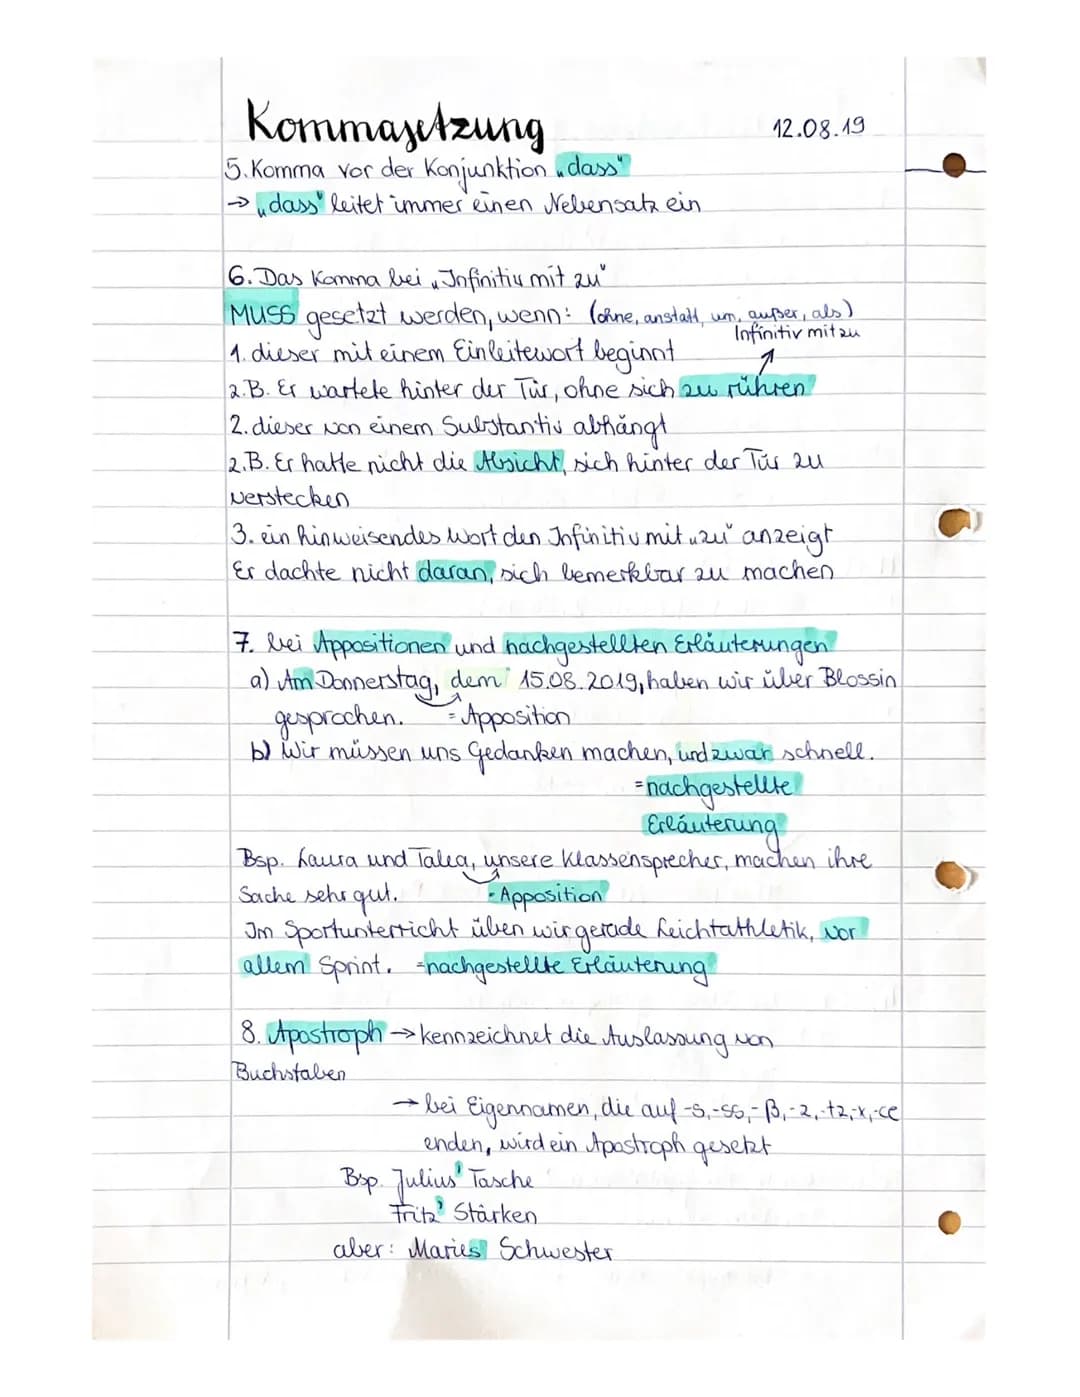 Kommasetzung 12.08.19
5. Komma vor der Konjunktion „dass“
→ „dass“ leitet immer einen Nebensatz ein
6. Das Komma bei „Infinitiv mit zu“
MUSS gesetzt werden, wenn: (ohne, anstatt, um, außer, als)
Infinitiv mit zu
1. dieser mit einem Einleitewort beginnt
z.B. Er wartete hinter der Tür, ohne sich zu rühren
2. dieser von einem Substantiv abhängt
z.B. Er hatte nicht die Absicht, sich hinter der Tür zu
verstecken
3. ein hinweisendes Wort den Infinitiv mit „zu“ anzeigt
Er dachte nicht daran, sich bemerkbar zu machen
7. bei Appositionen und nachgestellten Erläuterungen
a) Am Donnerstag, dem 15.08.2019, haben wir über Blossin
gesprochen. = Apposition
b) Wir müssen uns Gedanken machen, und zwar schnell.
= nachgestellte
Erläuterung
Bsp. Laura und Talea, unsere Klassensprecher, machen ihre
Sache sehr gut. = Apposition
Im Sportunterricht üben wir gerade Leichtathletik, vor
allem Sprint. = nachgestellte Erläuterung
8. Apostroph → kennzeichnet die Auslassung von
Buchstaben
→ bei Eigennamen, die auf -s, -ss, -ß, -z, -tz, -x, -ce
enden, wird ein Apostroph gesetzt
Bsp. Julius' Tasche
Fritz' Stärken
aber: Maries Schwester